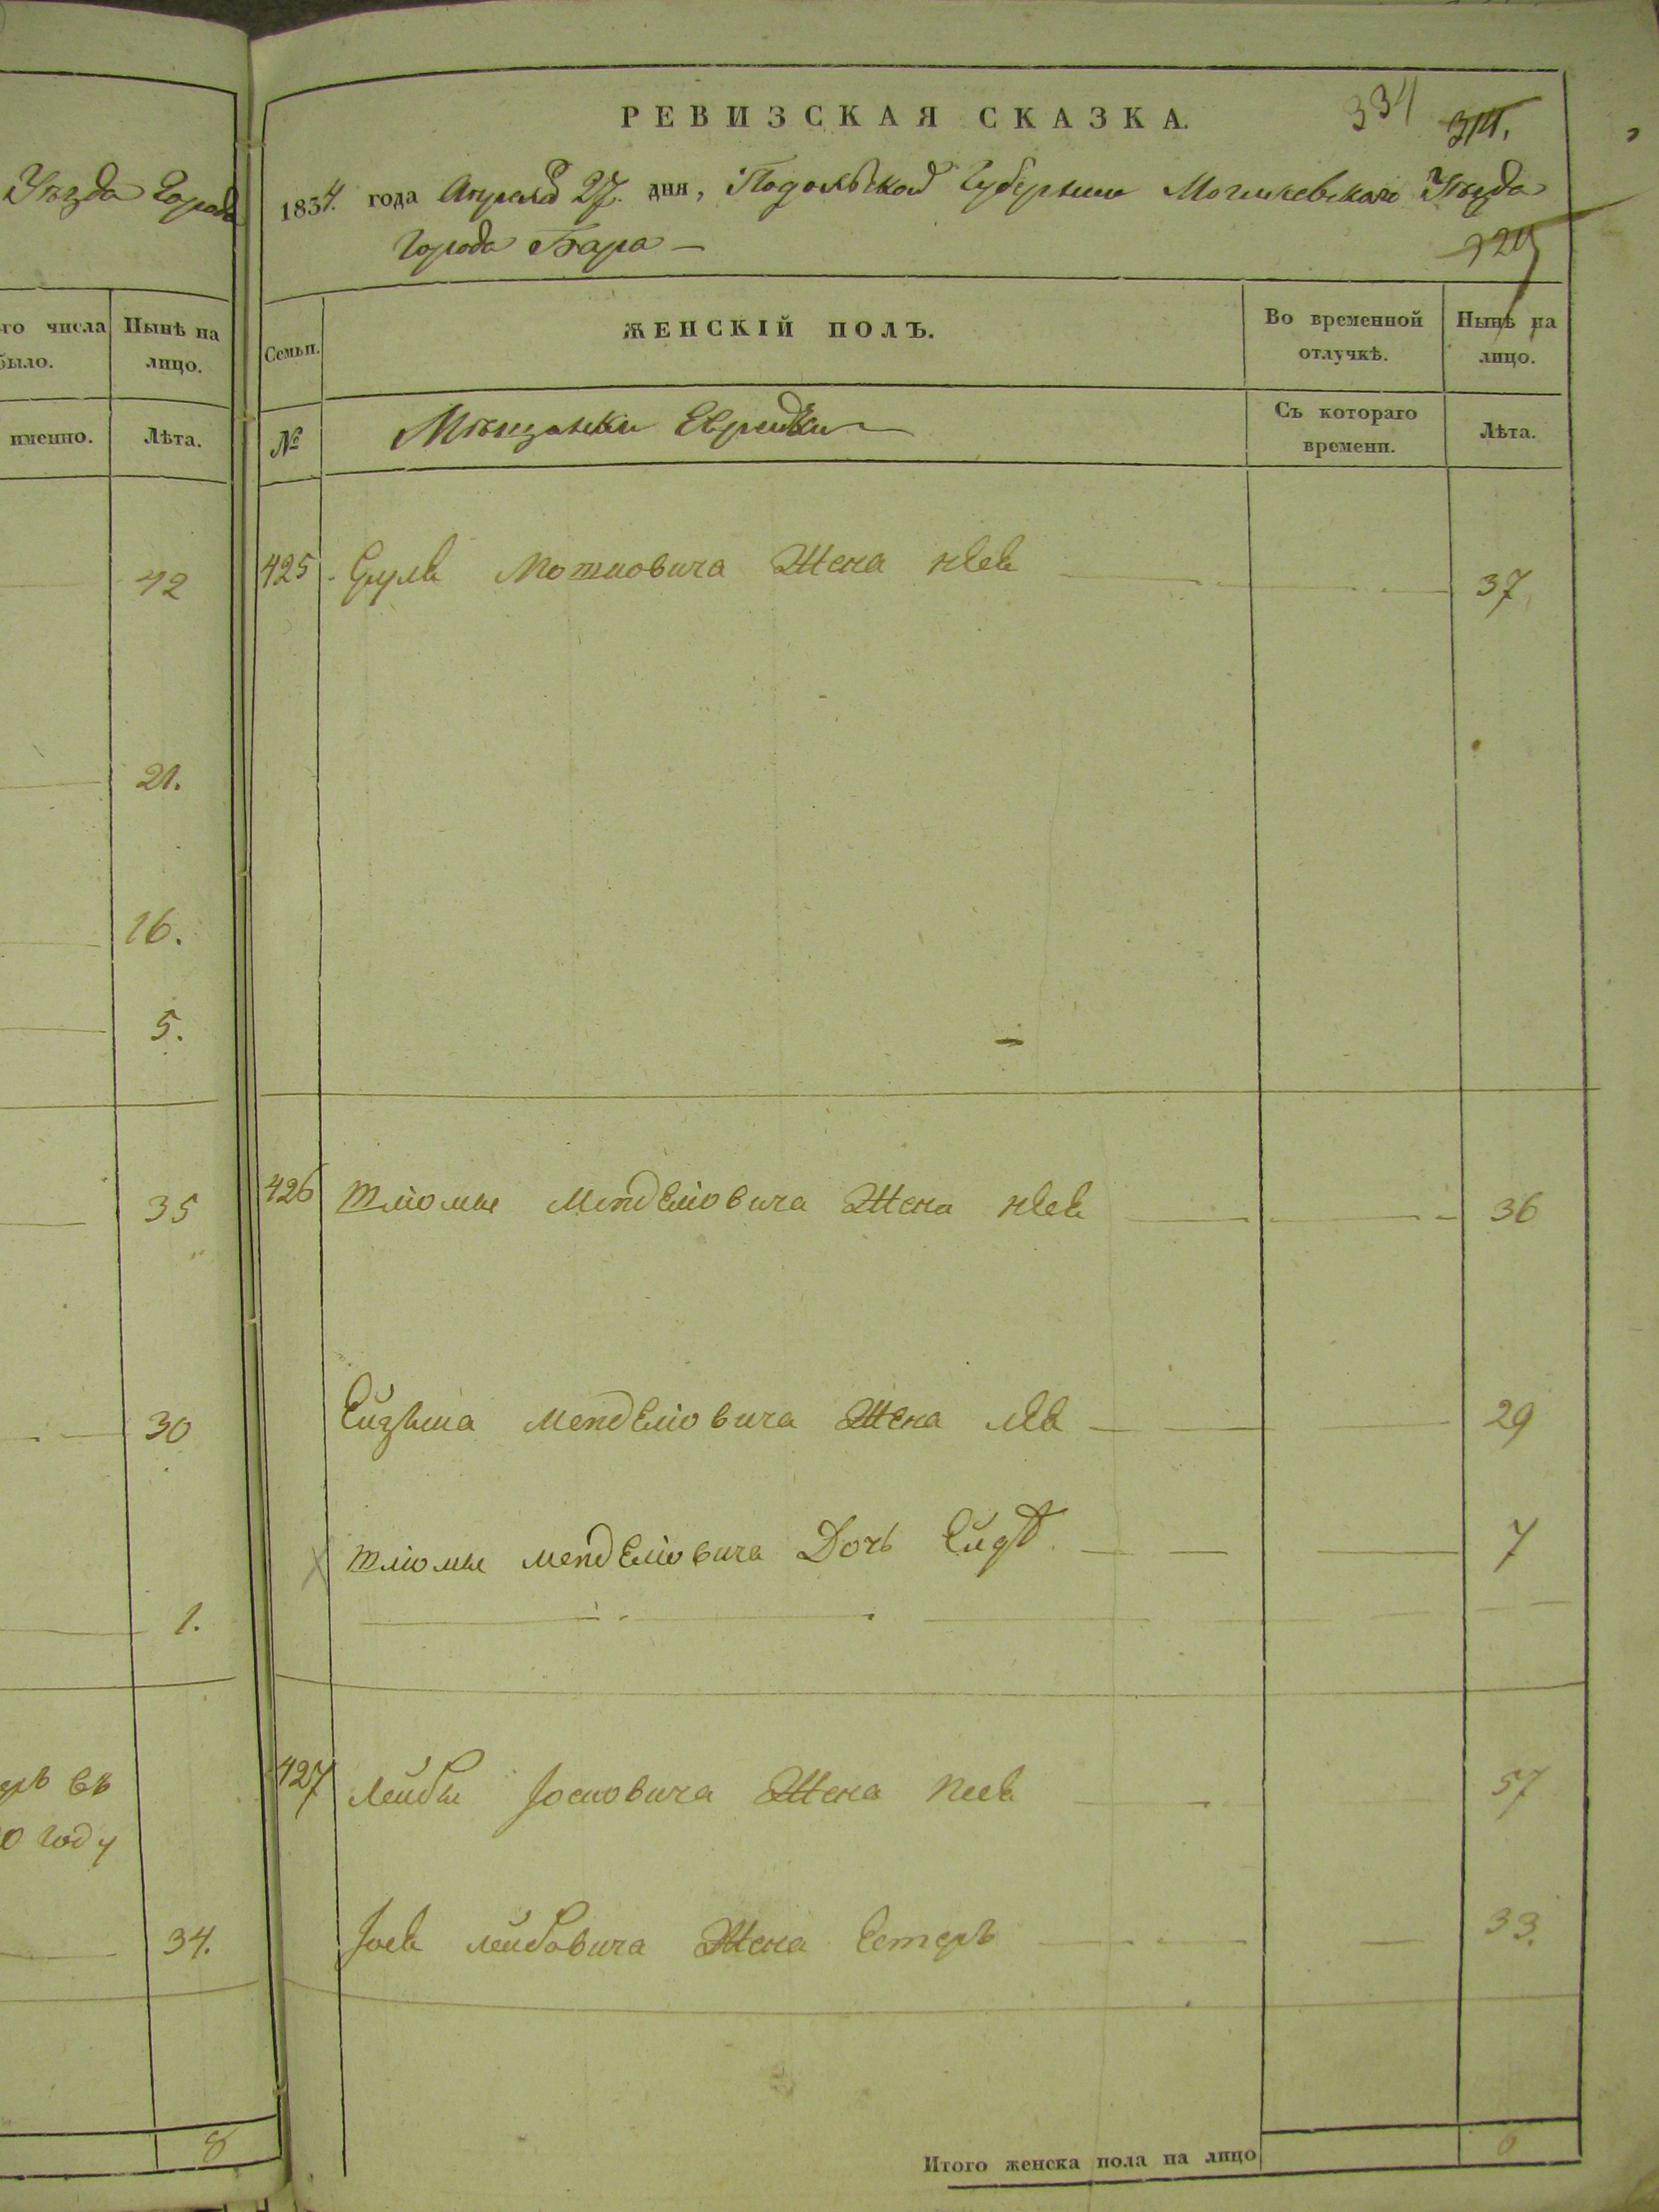 Уѣзда Города
го числа
было.
Нынѣ на
лицо.
именно.
Лѣта.
42
21.
16.
5.
35
30
1.
въ
0 году
34.
8
РЕВИЗСКАЯ СКАЗКА.
334
1834. года Апреля 27. дня, Подольской Губернии Могилевского Уѣзда
Города Бара —
Семьи.
ЖЕНСКІЙ ПОЛЪ.
Во временной
отлучкѣ.
Нынѣ на
лицо.
№
Мѣщанки Еврейки
Съ котораго
времени.
Лѣта.
425 Мотиовича Жена 37
426 Шлiомы Менделiовича Жена 36
Менделiовича Жена 29
Шлiомы Менделiовича Дочь 7
427 Лейбы Iосiовича Жена 57
Лейбовича Жена Естеръ 33.
Итого женска пола на лицо 6